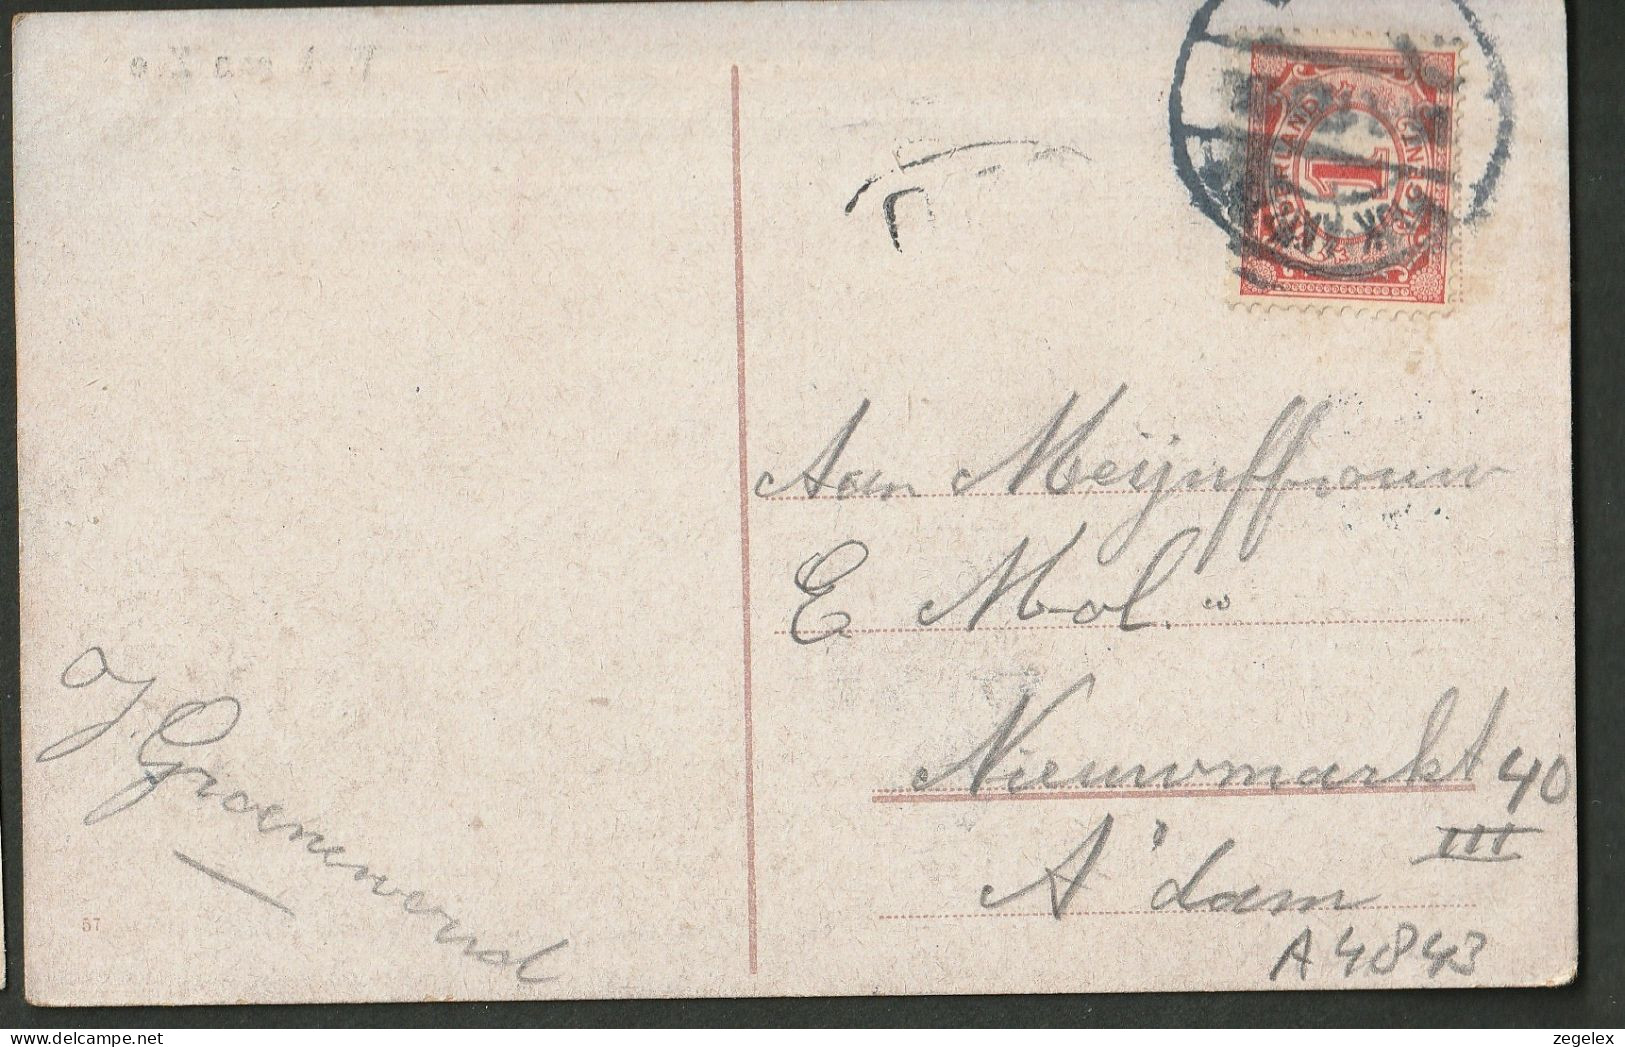 NEDERLAND
1 CENT
Aan Meijuffrouw
E Mol.
Nieuwmarkt 40
III
A'dam
A4843
J. Groenewoud
57
zegelex
delcampe.net